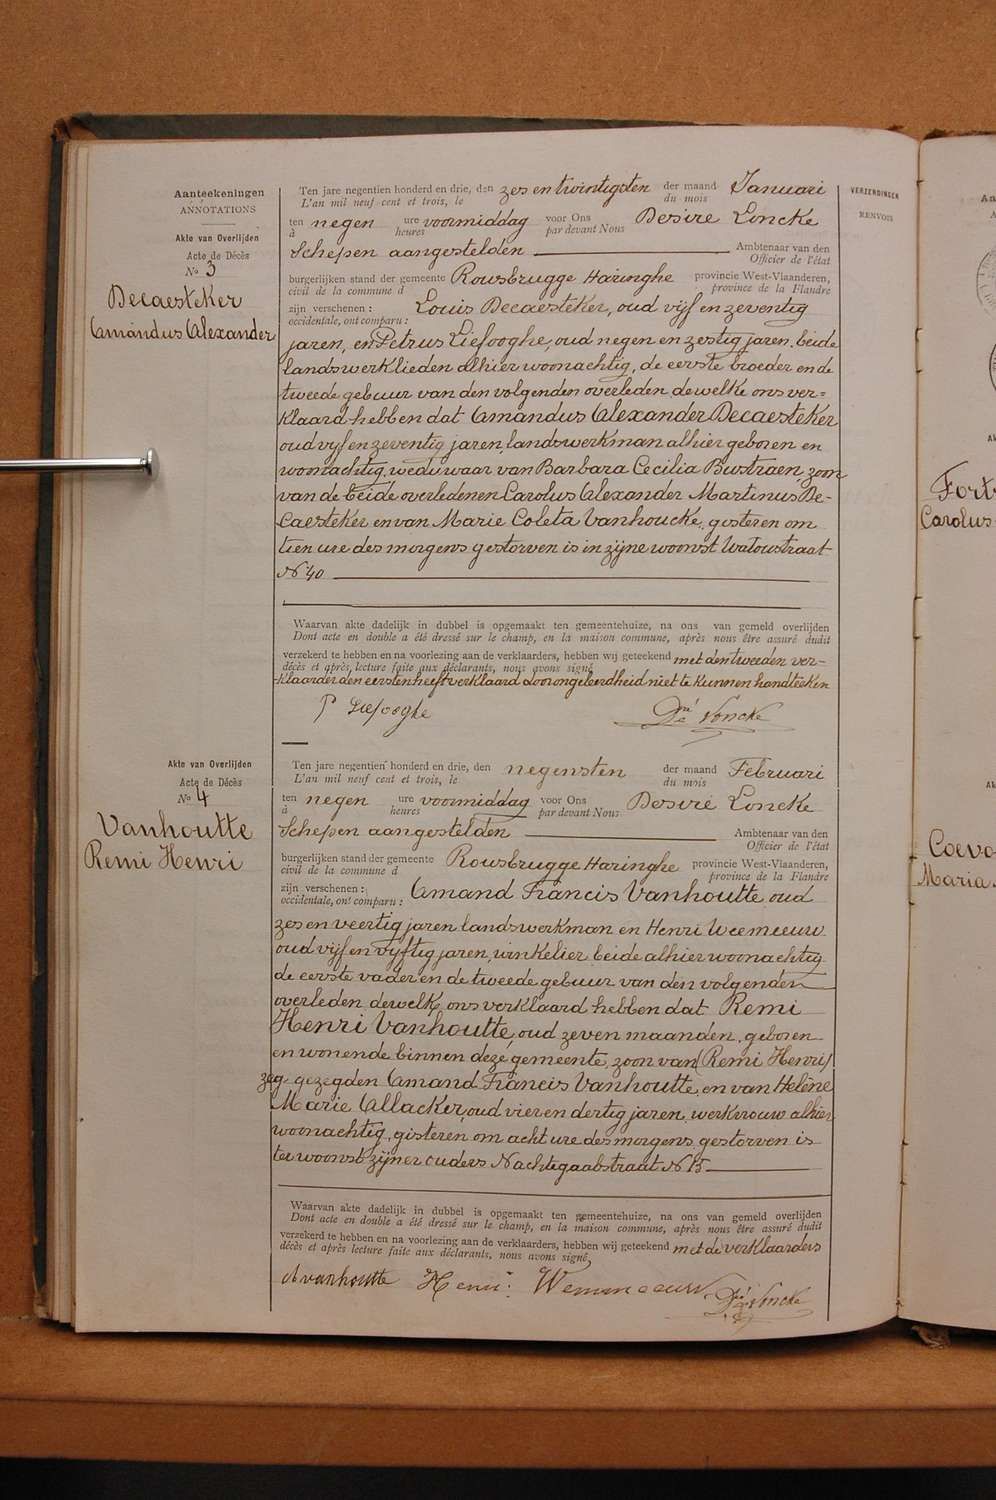 Aanteekeningen
ANNOTATIONS
Akte van Overlijden
Acte de Décès
No 3
Decaesteker
Amandus Alexander
Ten jare negentien honderd en drie, den zes en twintigsten der maand Januari
L'an mil neuf cent et trois, le du mois
ten negen ure voormiddag voor Ons Desiré Loncke
à heures par devant Nous
Schepen aangestelden Ambtenaar van den
Officier de l'état
burgerlijken stand der gemeente Rousbrugge Haringhe provincie West-Vlaanderen,
civil de la commune d province de la Flandre
zijn verschenen : Louis Decaesteker, oud vijf en zeventig
occidentale, ont comparu :
jaren, en Petrus Liefooghe, oud negen en zestig jaren, beide
landswerklieden alhier woonachtig, de eerste broeder en de
tweede gebuur van den volgenden overleden dewelke ons ver=
klaard hebben dat Amandus Alexander Decaesteker
oud vijf en zeventig jaren, landswerkman alhier geboren en
woonachtig, weduwaar van Barbara Cecilia Bustraen, zoon
van de beide overledenen Carolus Alexander Martinus De-
caesteker en van Marie Coleta Vanhoucke, gisteren om
tien ure des morgens gestorven is in zijne woonst Watoustraat
No 40
Waarvan akte dadelijk in dubbel is opgemaakt ten gemeentehuize, na ons van gemeld overlijden
Dont acte en double a été dressé sur le champ, en la maison commune, après nous être assuré dudit
verzekerd te hebben en na voorlezing aan de verklaarders, hebben wij geteekend met den tweeden ver-
décès et après lecture faite aux déclarants, nous avons signé
klaarder den eersten heeft verklaard door ongeleerdheid niet te kunnen handteeken
P Liefooghe Dré Loncke
Akte van Overlijden
Acte de Décès
No 4
Vanhoutte
Remi Henri
Ten jare negentien honderd en drie, den negensten der maand Februari
L'an mil neuf cent et trois, le du mois
ten negen ure voormiddag voor Ons Desiré Loncke
à heures par devant Nous
Schepen aangestelden Ambtenaar van den
Officier de l'état
burgerlijken stand der gemeente Rousbrugge Haringhe provincie West-Vlaanderen,
civil de la commune d province de la Flandre
zijn verschenen : Amand Francis Vanhoutte oud
occidentale, ont comparu :
zes en veertig jaren landswerkman en Henri Weemeeuw
oud vijf en vijftig jaren, winkelier beide alhier woonachtig
de eerste vader en de tweede gebuur van den volgenden
overleden dewelke ons verklaard hebben dat Remi
Henri Vanhoutte, oud zeven maanden, geboren
en wonende binnen deze gemeente, zoon van (Remi Henri)
zeg gezegden Amand Francis Vanhoutte, en van Helène
Marie Allacker, oud vier en dertig jaren, werkvrouw alhier
woonachtig, gisteren om acht ure des morgens gestorven is
ter woonst zijner ouders Nachtegaalstraat No 15
Waarvan akte dadelijk in dubbel is opgemaakt ten gemeentehuize, na ons van gemeld overlijden
Dont acte en double a été dressé sur le champ, en la maison commune, après nous être assuré dudit
verzekerd te hebben en na voorlezing aan de verklaarders, hebben wij geteekend met de verklaarders
décès et après lecture faite aux déclarants, nous avons signé
A vanhoutte Henri Wemmeeuw Dré Loncke
VERZENDINGEN
RENVOIS
Carolus
Coevo
Maria